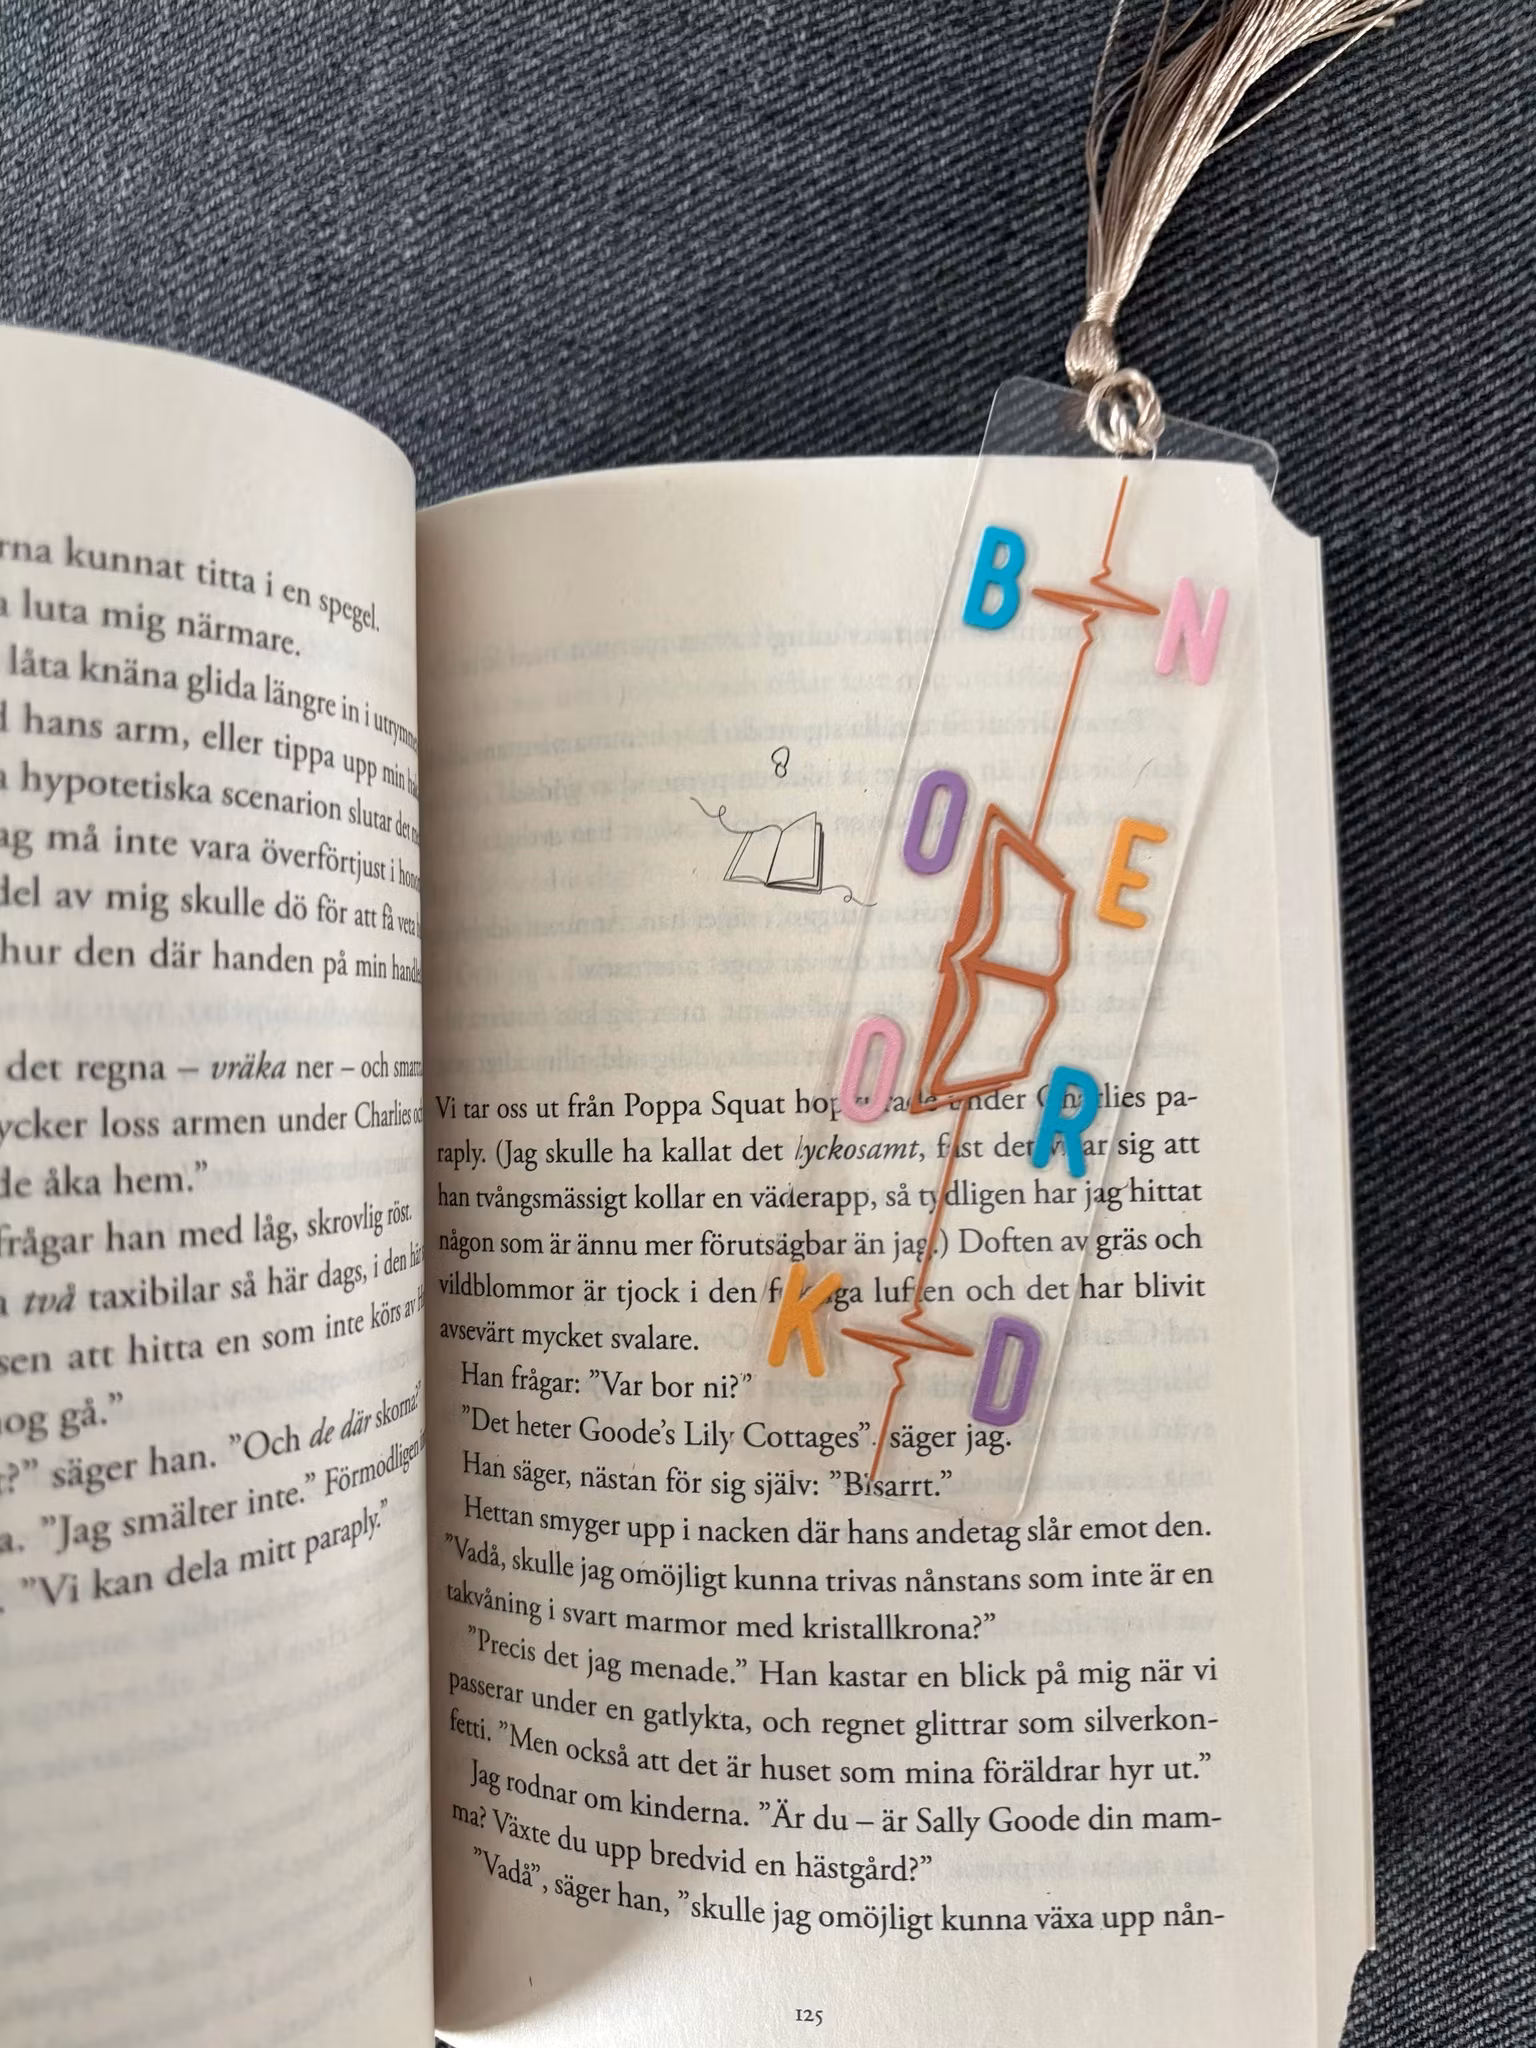 kunnat titta i en spegel.
luta mig närmare.
låta knäna glida längre in i
hans arm, eller tippa upp min
hypotetiska scenarion slutar det
må inte vara överförtjust i
del av mig skulle dö för att få veta
hur den där handen på min
det regna – vräka ner – och
loss armen under Charlies
åka hem.”
frågar han med låg, skrovlig röst.
två taxibilar så här dags, i den
att hitta en som inte körs av
nog gå.”
säger han. ”Och de där skorna?”
”Jag smälter inte.” Förmodligen
”Vi kan dela mitt paraply.”
8
B N
O E
O R
K D
Vi tar oss ut från Poppa Squat under Charlies pa-
raply. (Jag skulle ha kallat det lyckosamt, fast det visar sig att
han tvångsmässigt kollar en väderapp, så tydligen har jag hittat
någon som är ännu mer förutsägbar än jag.) Doften av gräs och
vildblommor är tjock i den fuktiga luften och det har blivit
avsevärt mycket svalare.
Han frågar: ”Var bor ni?”
”Det heter Goode’s Lily Cottages”, säger jag.
Han säger, nästan för sig själv: ”Bisarrt.”
Hettan smyger upp i nacken där hans andetag slår emot den.
”Vadå, skulle jag omöjligt kunna trivas nånstans som inte är en
takvåning i svart marmor med kristallkrona?”
”Precis det jag menade.” Han kastar en blick på mig när vi
passerar under en gatlykta, och regnet glittrar som silverkon-
fetti. ”Men också att det är huset som mina föräldrar hyr ut.”
Jag rodnar om kinderna. ”Är du – är Sally Goode din mam-
ma? Växte du upp bredvid en hästgård?”
”Vadå”, säger han, ”skulle jag omöjligt kunna växa upp nån-
125